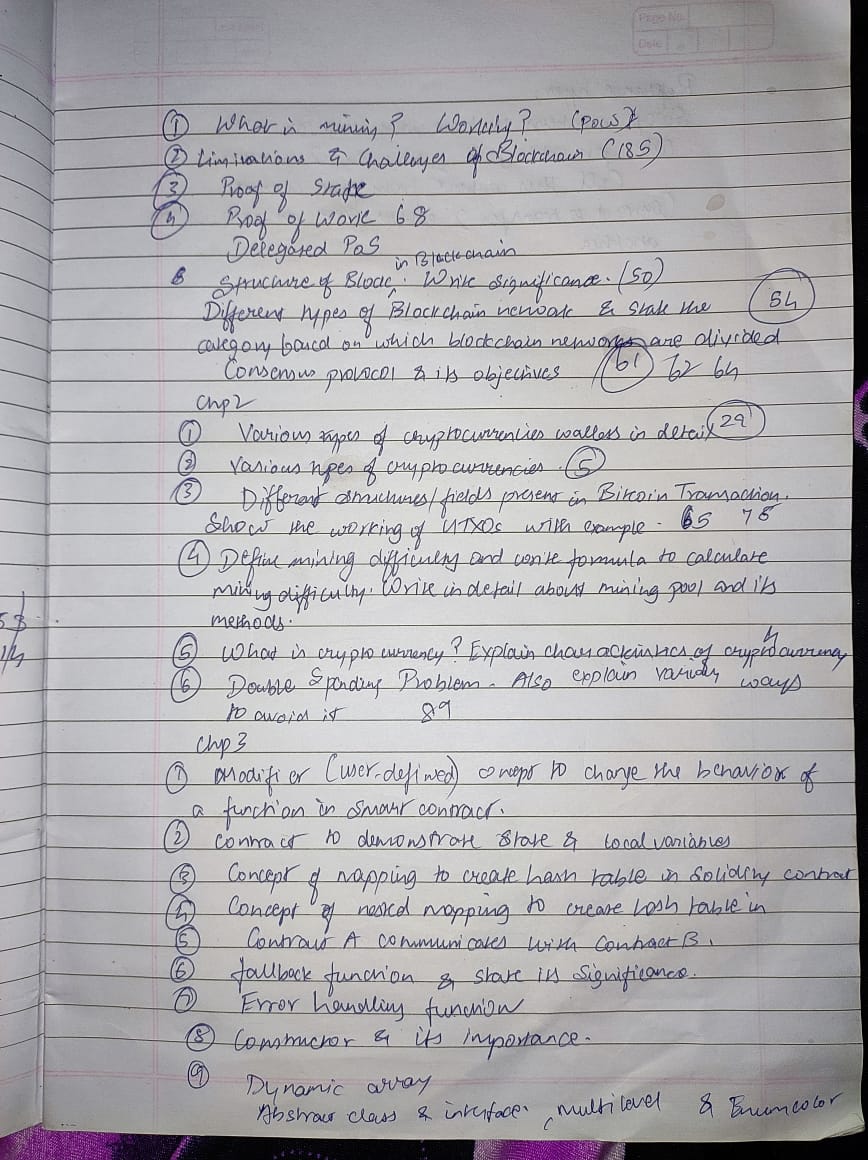 Page No.
Date
① What is mining? Working? (PoWS)
② Limitations & Challenges of Blockchain (185)
③ Proof of Stake
④ Proof of Work 68
Delegated PoS
in Blockchain
6 Structure of Block. Write significance. (50)
Different types of Blockchain network & state the 54
category based on which blockchain networks are divided
Consensus protocol & its objectives 61 62 64
Chp2
① Various types of cryptocurrencies wallets in detail 29
② Various types of cryptocurrencies. 5
③ Different structures/fields present in Bitcoin Transaction.
Show the working of UTXOs with example - 65 78
④ Define mining difficulty and write formula to calculate
mining difficulty. Write in detail about mining pool and its
methods.
4
⑤ What is crypto currency? Explain characteristics of cryptocurrency
⑥ Double Spending Problem - Also explain various ways
to avoid it 89
Chp3
① Modifier (user-defined) concept to change the behavior of
a function in smart contract.
② contract to demonstrate state & local variables
③ Concept of mapping to create hash table in Solidity contract
④ Concept of nested mapping to create hash table in
⑤ Contract A communicates with Contract B.
⑥ fallback function & state its significance.
⑦ Error handling function
⑧ Constructor & its importance.
⑨ Dynamic array
Abstract class & interface, multilevel & Enumcolor